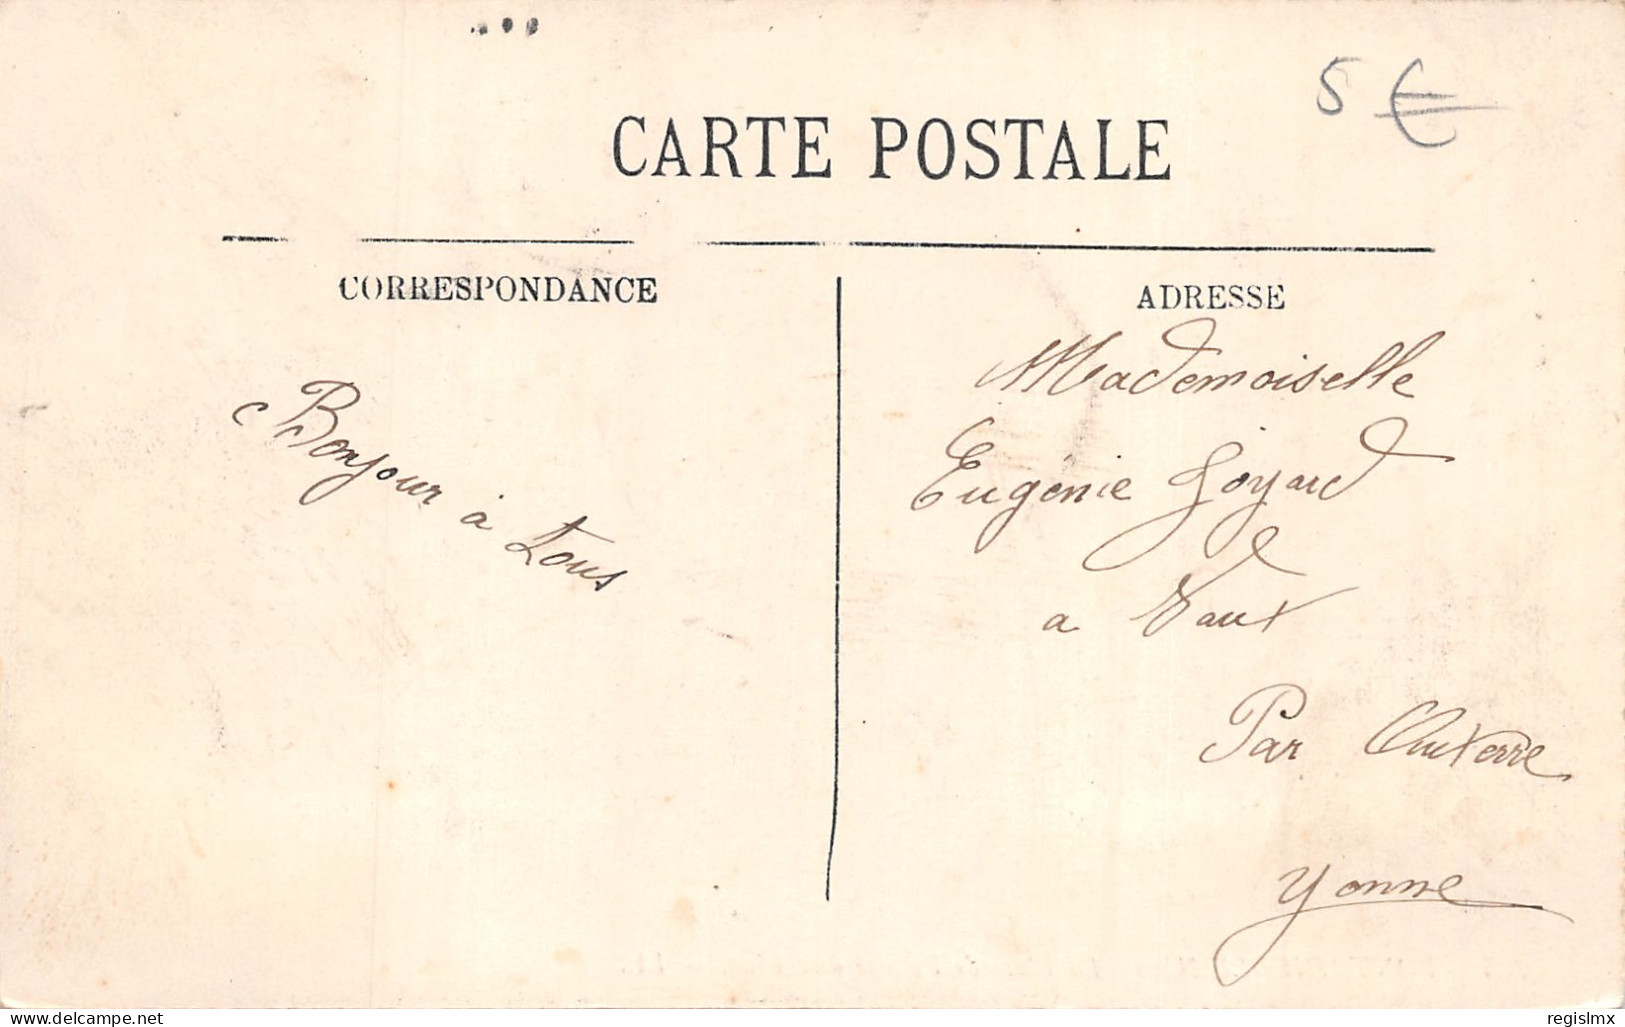 5 €
CARTE POSTALE
CORRESPONDANCE
Bonjour à tous
ADRESSE
Mademoiselle
Eugénie Goyard
a Vaux
Par Auxerre
Yonne
www.delcampe.net
regislmx